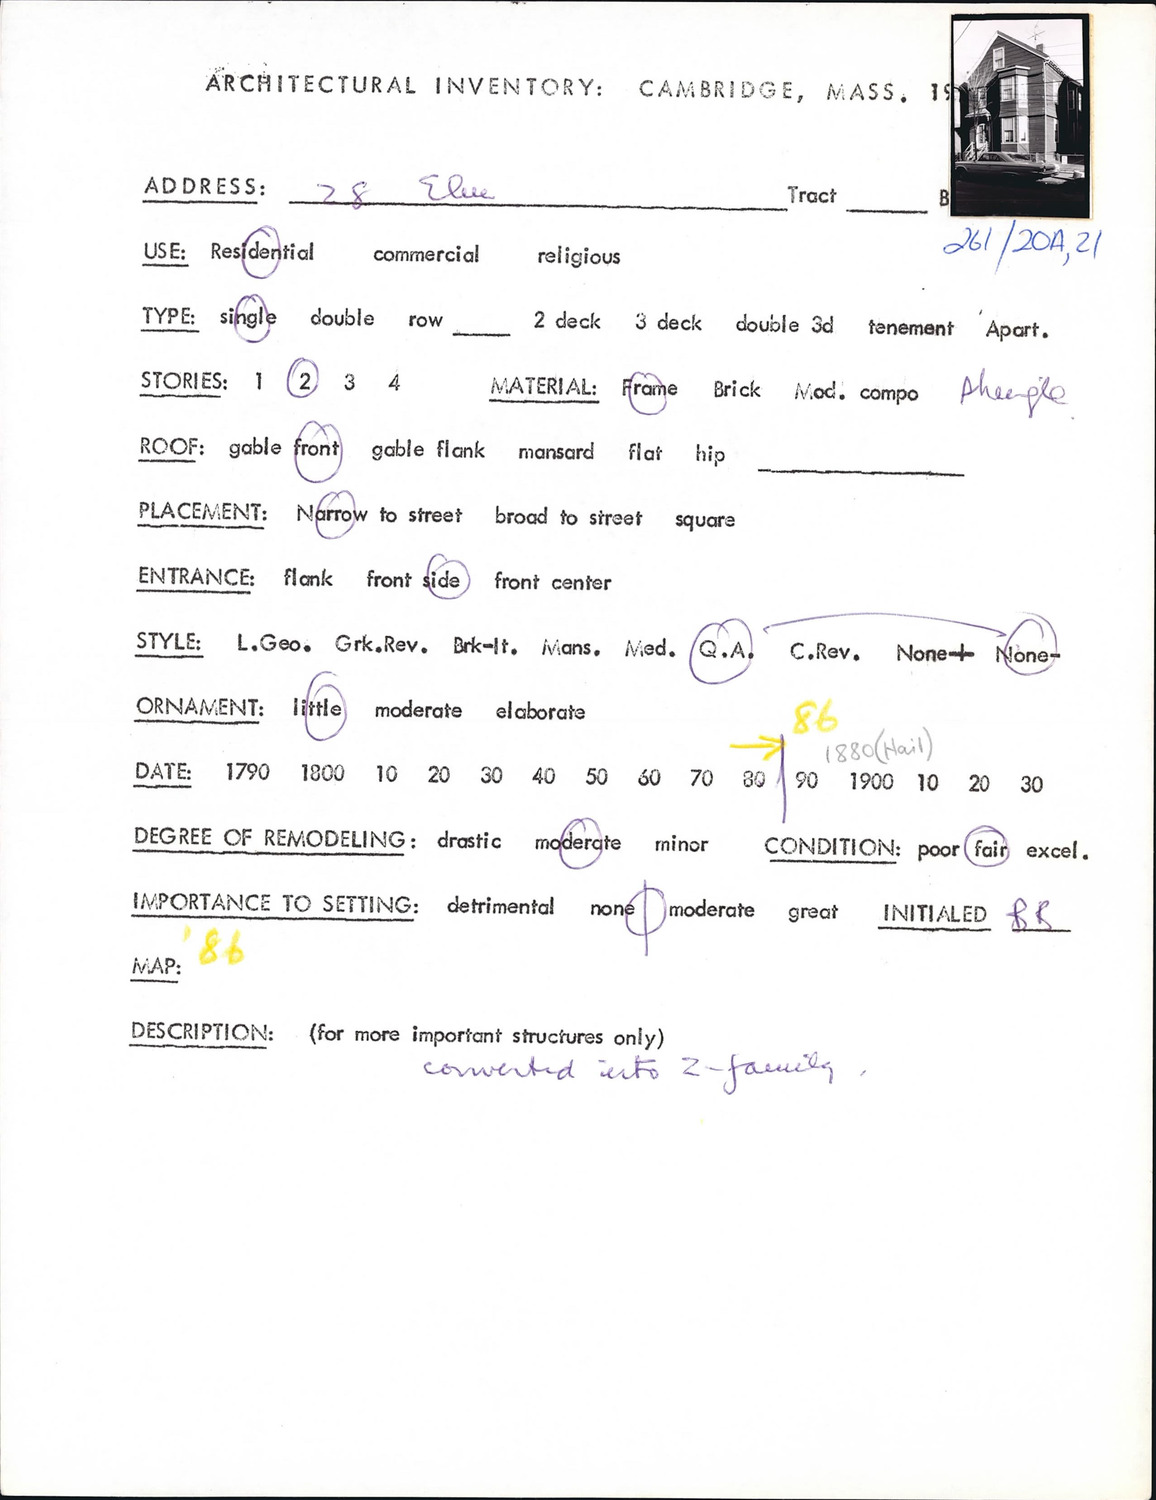 ARCHITECTURAL INVENTORY: CAMBRIDGE, MASS. 19
ADDRESS: 28 Elm Tract B
261/20A,21
USE: Residential commercial religious
TYPE: single double row 2 deck 3 deck double 3d tenement Apart.
STORIES: 1 2 3 4 MATERIAL: Frame Brick Mod. compo Shingle
ROOF: gable front gable flank mansard flat hip
PLACEMENT: Narrow to street broad to street square
ENTRANCE: flank front side front center
STYLE: L.Geo. Grk.Rev. Brk-It. Mans. Med. Q.A. C.Rev. None+ None-
ORNAMENT: little moderate elaborate
86
1880(Hail)
DATE: 1790 1800 10 20 30 40 50 60 70 80 90 1900 10 20 30
DEGREE OF REMODELING: drastic moderate minor CONDITION: poor fair excel.
IMPORTANCE TO SETTING: detrimental none moderate great INITIALED BR
MAP: '86
DESCRIPTION: (for more important structures only)
converted into 2-family.